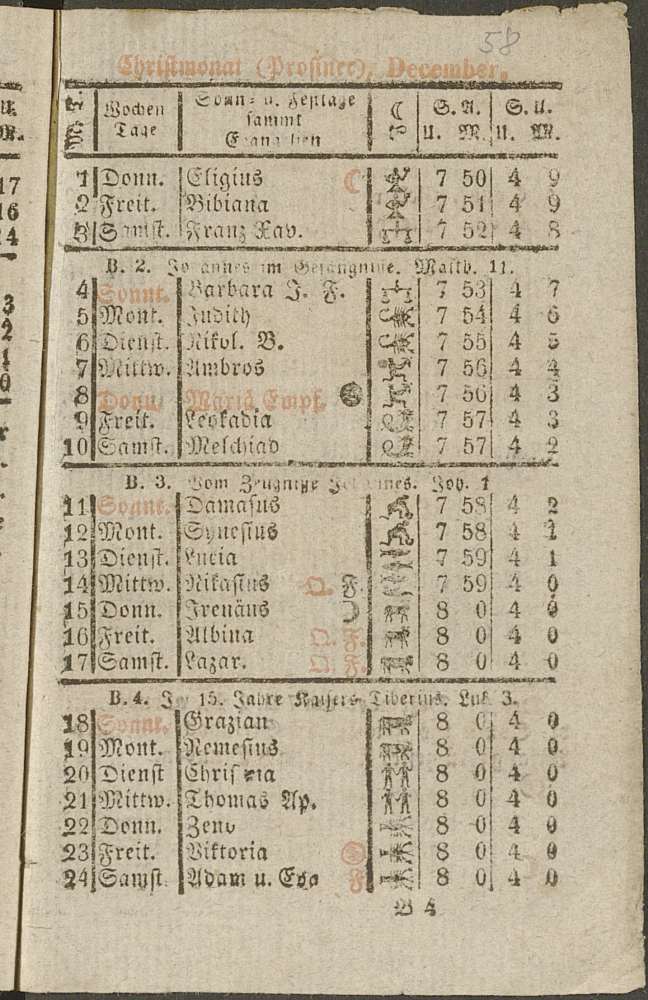 58
Christmonat (Prosinec), December.
Wochen Tage
Sonn- u. Festage sammt Evangelien
☾
S. A. S. U.
U. M. U. M.
1 Donn. Eligius ☾ 7 50 4 9
2 Freit. Bibiana 7 51 4 9
3 Samst. Franz Xav. 7 52 4 8
B. 2. Johannes im Gefängnisse. Matth. 11.
4 Sonnt. Barbara J. F. 7 53 4 7
5 Mont. Judith 7 54 4 6
6 Dienst. Nikol. B. 7 55 4 5
7 Mittw. Ambros 7 56 4 4
8 Donn. Mariä Empf. 7 56 4 3
9 Freit. Leokadia 7 57 4 3
10 Samst. Melchiad 7 57 4 2
B. 3. Vom Zeugnisse Johannes. Joh. 1
11 Sonnt. Damasus 7 58 4 2
12 Mont. Synesius 7 58 4 1
13 Dienst. Lucia 7 59 4 1
14 Mittw. Nikasius Q. F. 7 59 4 0
15 Donn. Irenäus ☽ 8 0 4 0
16 Freit. Albina Q. F. 8 0 4 0
17 Samst. Lazar. Q. F. 8 0 4 0
B. 4. Im 15. Jahre Kaisers Tiberius. Luk. 3.
18 Sonnt. Grazian 8 0 4 0
19 Mont. Nemesius 8 0 4 0
20 Dienst Christina 8 0 4 0
21 Mittw. Thomas Ap. 8 0 4 0
22 Donn. Zeno 8 0 4 0
23 Freit. Viktoria 8 0 4 0
24 Samst. Adam u. Eva F 8 0 4 0
B 4